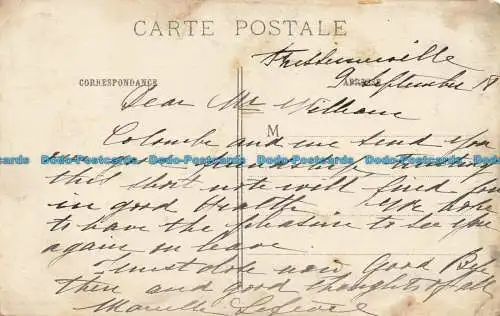 CARTE POSTALE
9 September 18
CORRESPONDANCE
ADRESSE
Dear Mr William
M
Colombe and me send you
this short note will find you
in good health We hope
to have the pleasure to see you
again in leave
I must close now Good Bye
then and good thoughts of all
Marcelle Lefevre
Dodo-Postcards Dodo-Postcards Dodo-Postcards Dodo-Postcards